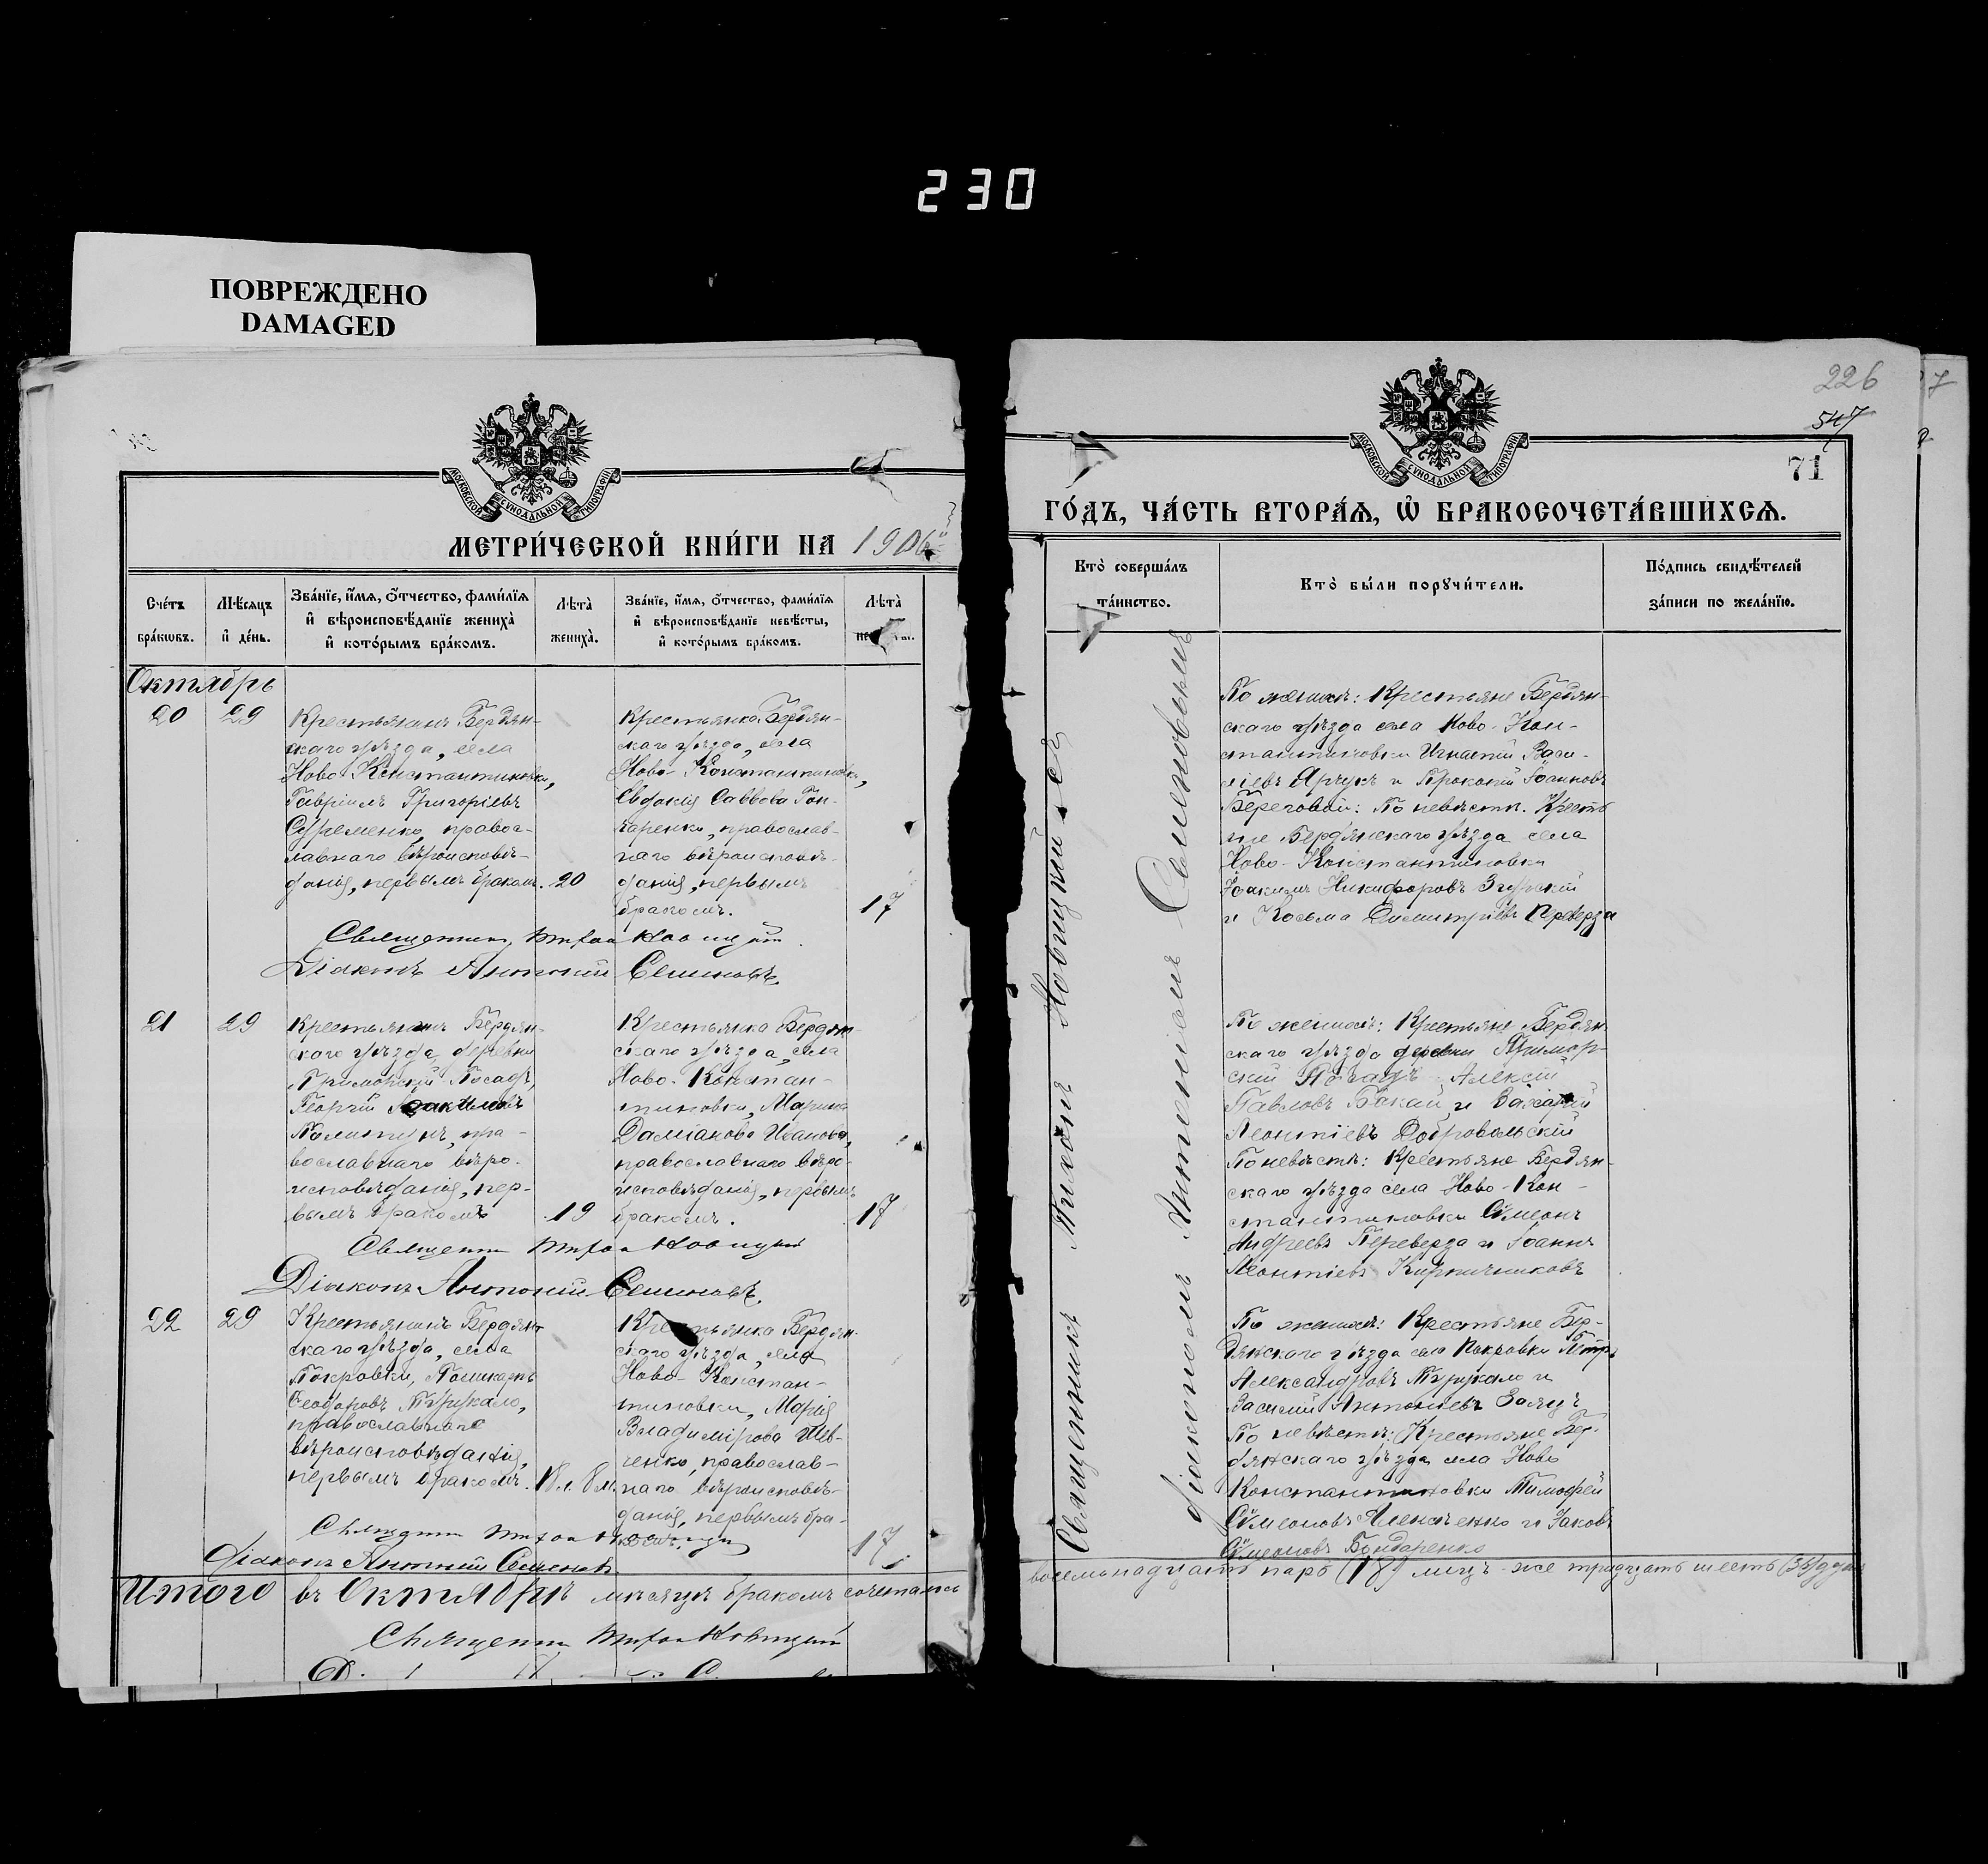 230
ПОВРЕЖДЕНО
DAMAGED
МОСКОВСКОЙ СУНОДАЛЬНОЙ ТИПОГРАФІИ
МЕТРИ́ЧЕСКОЙ КНИ́ГИ НА 1906
Сче́тъ бра́кѡвъ.
Мѣ́сяцъ и҆ де́нь.
Зва́нїе, и҆́мѧ, ѻ҆́тчество, фами́лїѧ и҆ вѣроисповѣ́данїе жениха̀ и҆ кото́рымъ бра́комъ.
Лѣта̀ жениха̀.
Зва́нїе, и҆́мѧ, ѻ҆́тчество, фами́лїѧ и҆ вѣроисповѣ́данїе невѣ́сты, и҆ кото́рымъ бра́комъ.
Лѣта̀
Октябрь
20
29
Крестьянинъ Бердян-
скаго уѣзда, села
Ново-Константиновки,
Гавріилъ Григоріевъ
Ефременко, правос-
лавнаго вѣроисповѣ-
данія, первымъ бракомъ.
20
Крестьянка Бердян-
скаго уѣзда, села
Ново-Константиновки,
Евдокія Саввова Гон-
чаренко, православ-
наго вѣроисповѣ-
данія, первымъ
бракомъ.
17
Священникъ Тихон Новицкій
Діаконъ Антоній Семеновъ
21
29
Крестьянинъ Бердян-
скаго уѣзда, деревни
Приморскій Посадъ,
Георгій
православнаго вѣро-
исповѣданія, пер-
вымъ бракомъ
19
Крестьянка Бердян-
скаго уѣзда, села
Ново-Констан-
тиновки, Марина
Даміанова Иванова,
православнаго вѣро-
исповѣданія, первымъ
бракомъ.
17
Священник Тихон Новицкий
Діаконъ Антоній Семеновъ
22
29
Крестьянинъ Бердян-
скаго уѣзда, села
Покровки,
Ѳеодоровъ
православнаго
вѣроисповѣданія,
первымъ бракомъ.
18 л. 8 м.
Крестьянка Бердян-
скаго уѣзда, села
Ново-Констан-
тиновки, Марія
Владимірова Шев-
ченко, православ-
наго вѣроисповѣ-
данія, первымъ бра-
комъ.
17
Священник Тихон Новицкий
Діаконъ Антоній Семеновъ
Итого въ Октябрѣ мѣсяцѣ бракомъ сочеталось
Священник Тихон Новицкий
226
547
71
МОСКОВСКОЙ СУНОДАЛЬНОЙ ТИПОГРАФІИ
ГО́ДЪ, ЧА́СТЬ ВТОРА́Ѧ, Ѡ҆ БРАКОСОЧЕТА́ВШИХСѦ.
Кто̀ соверша́лъ та́инство.
Кто̀ бы́ли порꙋчи́тели.
По́дпись свидѣ́телей за́писи по жела́нїю.
Священникъ Тихонъ Новицкій съ
діакономъ Антоніемъ Семеновымъ
По женихѣ: Крестьяне Бердян-
скаго уѣзда села Ново-Кон-
стантиновки Игнатій Васи-
ліевъ и Прокопій Іоанновъ
Береговой: По невѣстѣ: Кресть
яне Бердянскаго уѣзда села
Ново-Константиновки
Іоакимъ Никифоровъ
и Косьма Димитріевъ
По женихѣ: Крестьяне Бердян-
скаго уѣзда деревни Примор-
скій Посадъ Алексій
Павловъ Бакай и Захарій
Леонтіевъ Добровольскій
По невѣстѣ: Крестьяне Бердян-
скаго уѣзда села Ново-Кон-
стантиновки Сѵмеонъ
Андреевъ Переверза и Іоаннъ
Леонтіевъ Кирпичниковъ
По женихѣ: Крестьяне Бер-
дянскаго уѣзда села Покровки Петръ
Александровъ и
Василій Антоніевъ Заяцъ
По невѣстѣ: Крестьяне Бер-
дянскаго уѣзда села Ново
Константиновки Тимофей
Сѵмеоновъ и Іаковъ
Сѵмеоновъ Бондаренко
восемьнадцать паръ (18) лицъ-же тридцать шесть (36) душъ